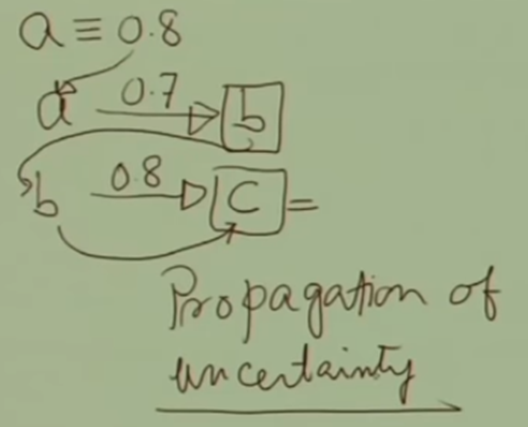 a ≡ 0.8
a 0.7 b
b 0.8 C =
Propagation of
uncertainty